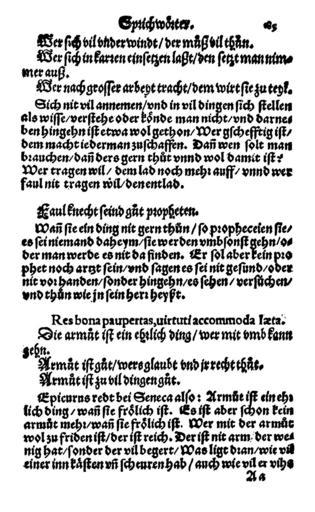 Sprichwörter. 85
Wer sich vil vnderwindt/der můß vil thůn.
Wer sich in karten einsetzen laßt/den setzt man nim-
mer auß.
Wer nach grosser arbeyt tracht/dem wirt sie zu teyl.
Sich nit vil annemen/vnd in vil dingen sich stellen
als wisse/verstehe oder könde man nicht/vnd darne-
ben hingehn ist etwa wol gethon/Wer gschefftig ist/
dem macht iederman zuschaffen. Dañ wen solt man
brauchen/dañ ders gern thůt vnnd wol damit ist?
Wer tragen wil/dem lad noch mehr auff/vnnd wer
faul nit tragen wil/den entlad.
Faul knecht seind gůt propheten.
Wañ sie ein ding nit gern thůn/so propheceien sie/
es sei niemand daheym/sie werden vmbsonst gehn/o-
der man werde es nit da finden. Er sol aber kein pro
phet noch artzt sein/vnd sagen es sei nit gesund/oder
nit vorhanden/sonder hingehn/es sehen/versůchen/
vnd thůn wie jn sein herr heyßt.
Res bona paupertas, uirtuti accommoda læta.
Die armůt ist ein ehrlich ding/wer mit vmb kann
gehn.
Armůt ist gůt/wers glaubt vnd jr recht thůt.
Armůt ist zu vil dingen gůt.
Epicurus redt bei Seneca also: Armůt ist ein ehr
lich ding/wañ sie frölich ist. Es ist aber schon kein
armůt mehr/wañ sie frölich ist. Wer mit der armůt
wol zu friden ist/der ist reich. Der ist nit arm der we-
nig hat/sonder der vil begert/Was ligt dran/wie vil
einer inn kästen vñ scheuren hab/auch wie vil er vihs
A a